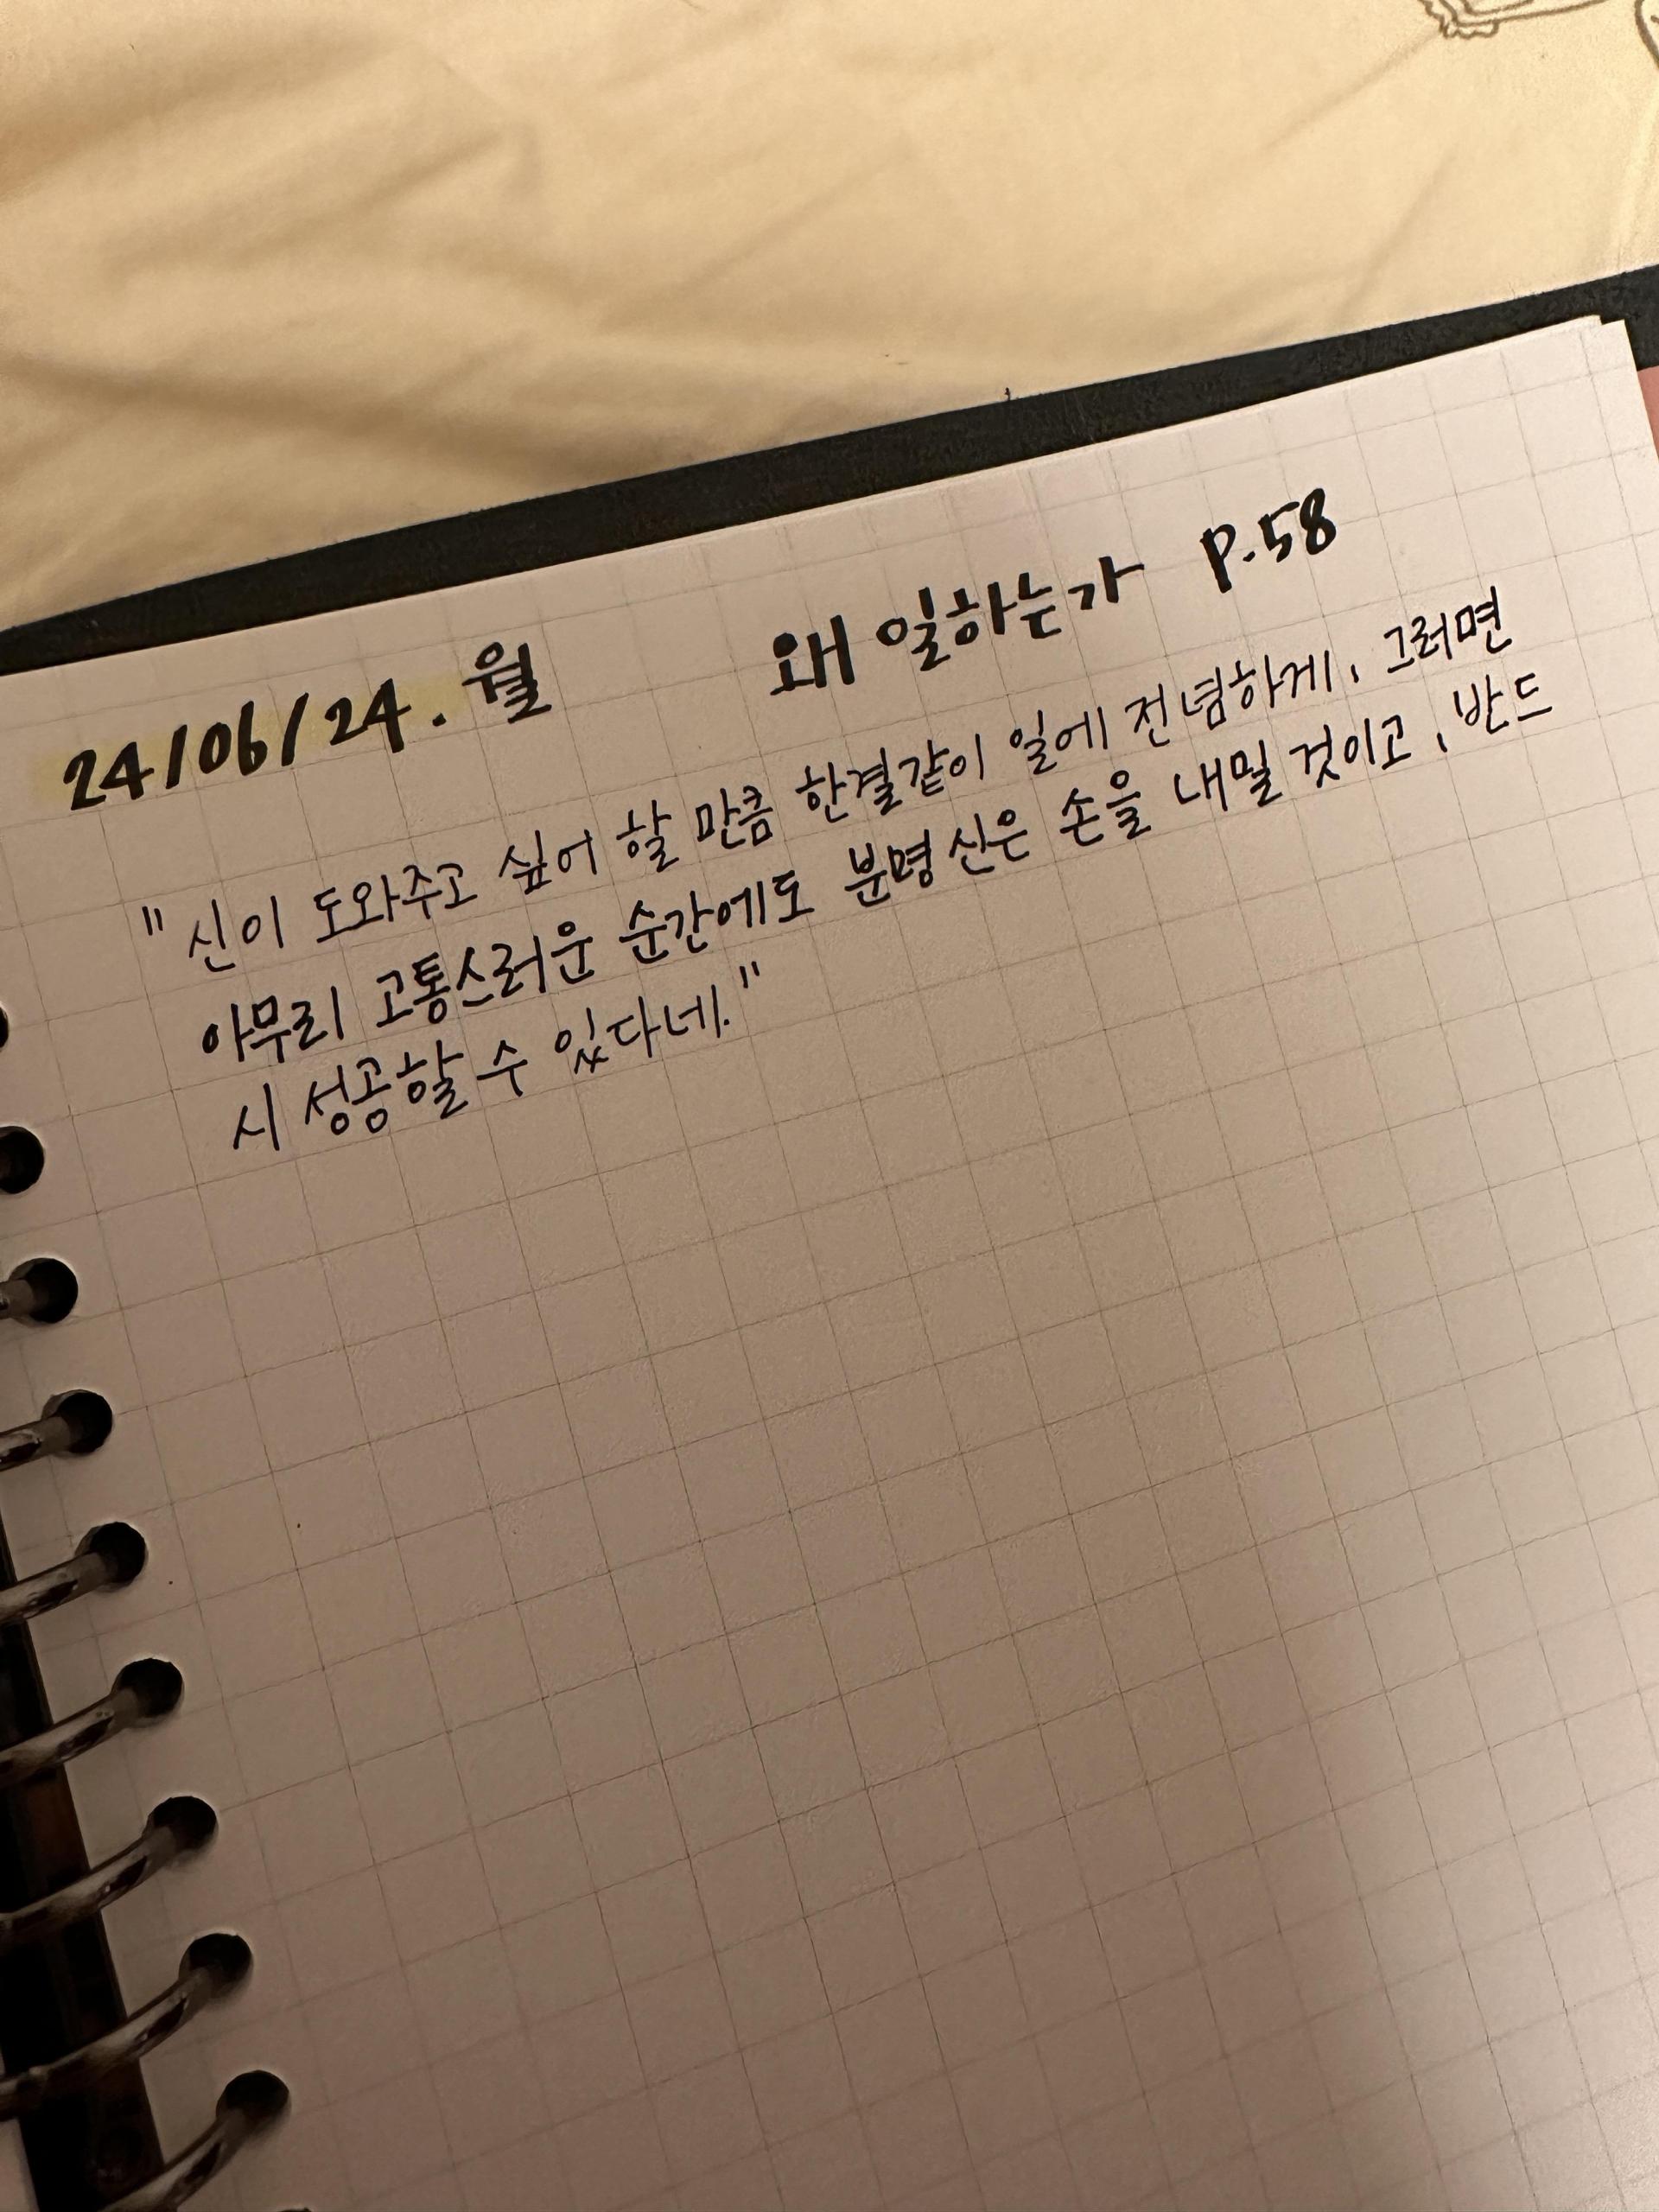 24/06/24. 월 왜 일하는가 P.58
"신이 도와주고 싶어 할 만큼 한결같이 일에 전념하게, 그러면
아무리 고통스러운 순간에도 분명 신은 손을 내밀 것이고, 반드
시 성공할 수 있다네."